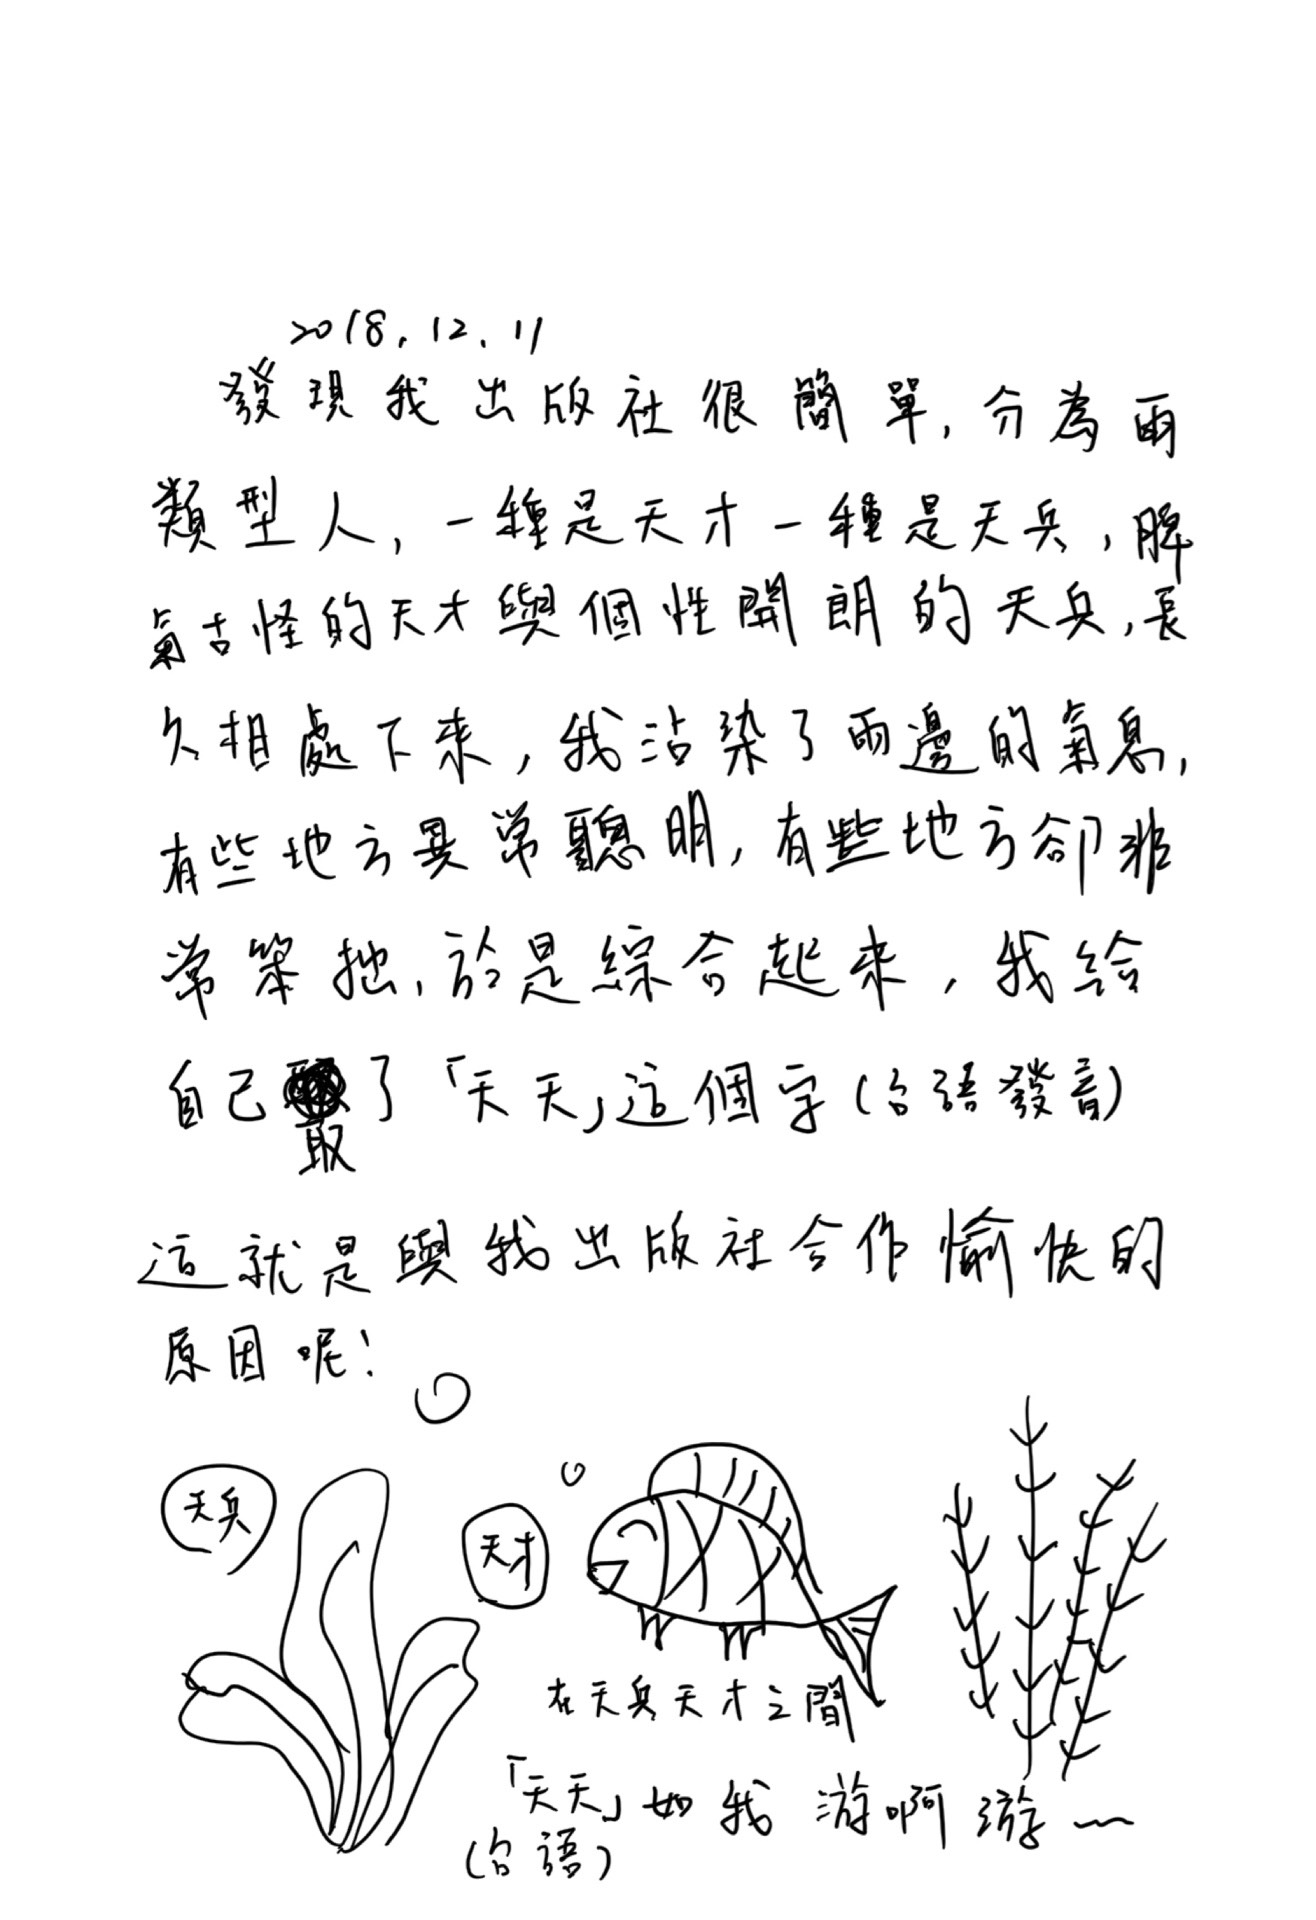 2018.12.11
發現我出版社很簡單,分為兩
類型人,一種是天才一種是天兵,脾
氣古怪的天才與個性開朗的天兵,長
久相處下來,我沾染了兩邊的氣息,
有些地方異常聰明,有些地方卻非
常笨拙,於是綜合起來,我給
自己取了「天天」這個字(台語發音)
這就是與我出版社合作愉快的
原因呢!
天兵
天才
在天兵天才之間
「天天」如我 游啊游~
(台語)